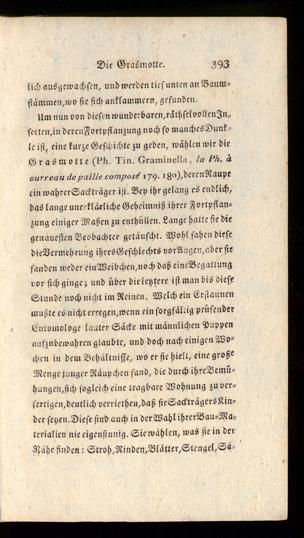 Die Grasmotte. 393
lich ausgewachsen, und werden tief unten an Baum-
stämmen, wo sie sich anklammern, gefunden.
Um nun von diesen wunderbaren, räthselvollen In-
secten, in deren Fortpflanzung noch so manches Dunk-
le ist, eine kurze Geschichte zu geben, wählen wir die
Grasmotte (Ph. Tin. Graminella, la Ph. à
fourreau de paille composé 179. 180), deren Raupe
ein wahrer Sackträger ist. Bey ihr gelang es endlich,
das lange unerklärliche Geheimniß ihrer Fortpflan-
zung einiger Maßen zu enthüllen. Lange hatte sie die
genauesten Beobachter getäuscht. Wohl sahen diese
die Vermehrung ihres Geschlechts vor Augen, aber sie
fanden weder ein Weibchen, noch daß eine Begattung
vor sich ginge; und über die letztere ist man bis diese
Stunde noch nicht im Reinen. Welch ein Erstaunen
mußte es nicht erregen, wenn ein sorgfälig prüfender
Entomologe lauter Säcke mit männlichen Puppen
aufzubewahren glaubte, und doch nach einigen Wo-
chen in dem Behältnisse, wo er sie hielt, eine große
Menge junger Räupchen fand, die durch ihre Bemü-
hungen, sich sogleich eine tragbare Wohnung zu ver-
fertigen, deutlich verriethen, daß sie Sackträgers Kin-
der seyen. Diese sind auch in der Wahl ihrer Bau-Ma-
terialien nie eigensinnig. Sie wählen, was sie in der
Nähe finden: Stroh, Rinden, Blätter, Stengel, Sä-